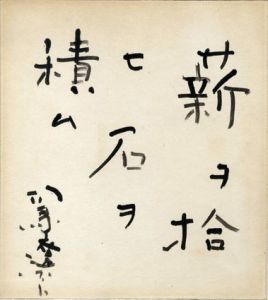 薪ヲ拾
ヒ石ヲ
積ム